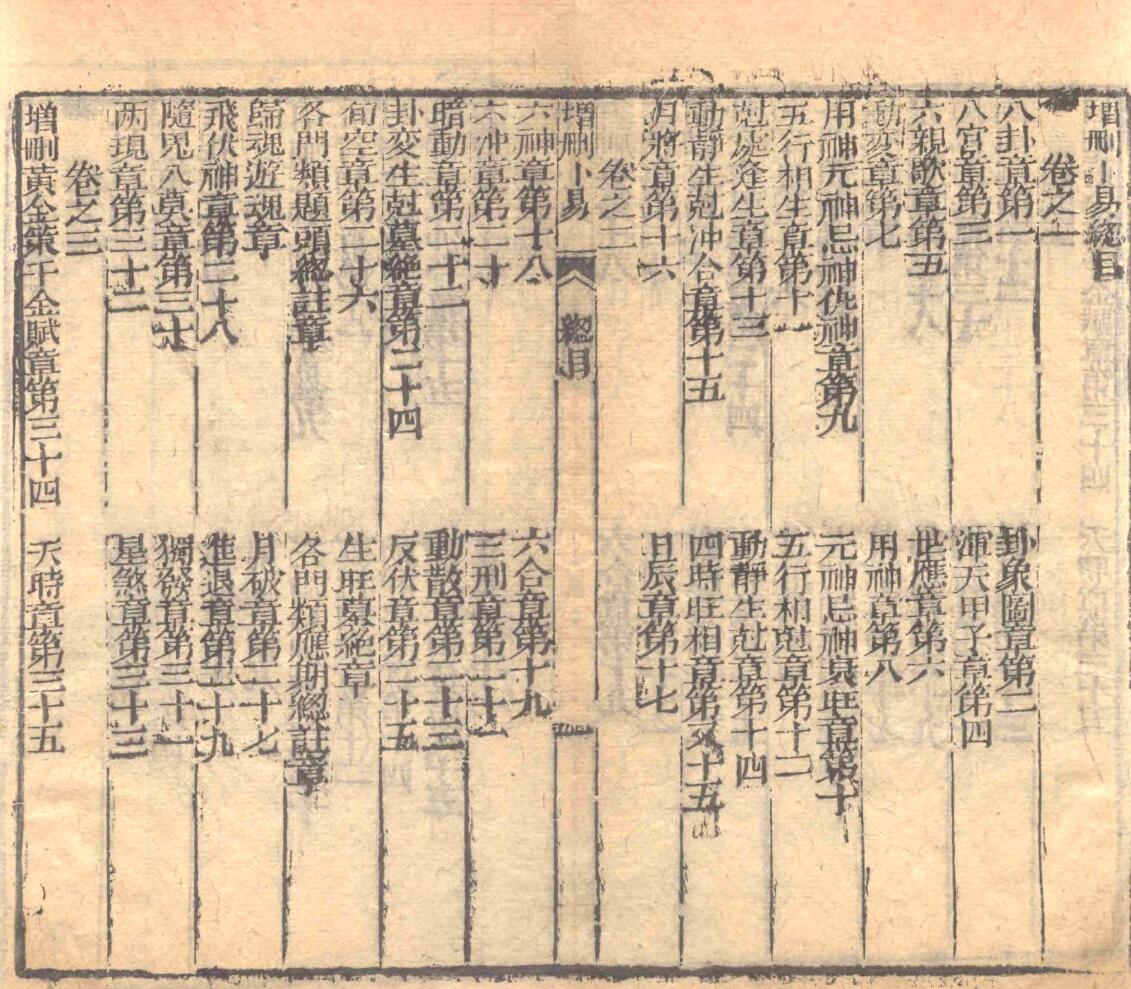 增刪卜易總目
卷之一
八卦章第一　卦象圖章第二
八宮章第三　渾天甲子章第四
六親歌章第五　世應章第六
動変章第七　用神章第八
用神元神忌神仇神章第九　元神忌神衰旺章第十
五行相生章第十一　五行相尅章第十二
尅處逢生章第十三　動靜生尅章第十四
動靜生尅冲合章第十五　四時旺相章第又十五
月將章第十六　日辰章第十七
卷之二
增刪卜易　總目
六神章第十八　六合章第十九
六冲章第二十　三刑章第二十一
暗動章第二十二　動散章第二十三
卦変生尅墓絶章第二十四　反伏章第二十五
旬空章第二十六　生旺墓絶章
各門類題頭總註章　各門類應期總註章
歸魂遊魂章　月破章第二十七
飛伏神章第二十八　進退章第二十九
隨鬼入墓章第三十　獨發章第三十一
两現章第三十二　星煞章第三十三
卷之三
增刪黃金策千金賦章第三十四　天時章第三十五